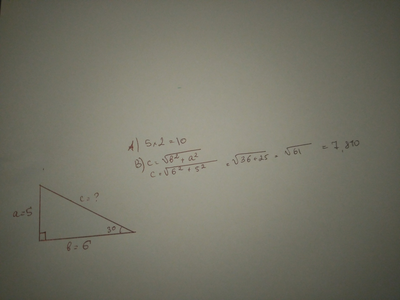 A) 5×2=10
B) c=√6²+a²
c=√6²+5² = √36+25 = √61 = 7,810
c=?
a=5
30
b=6